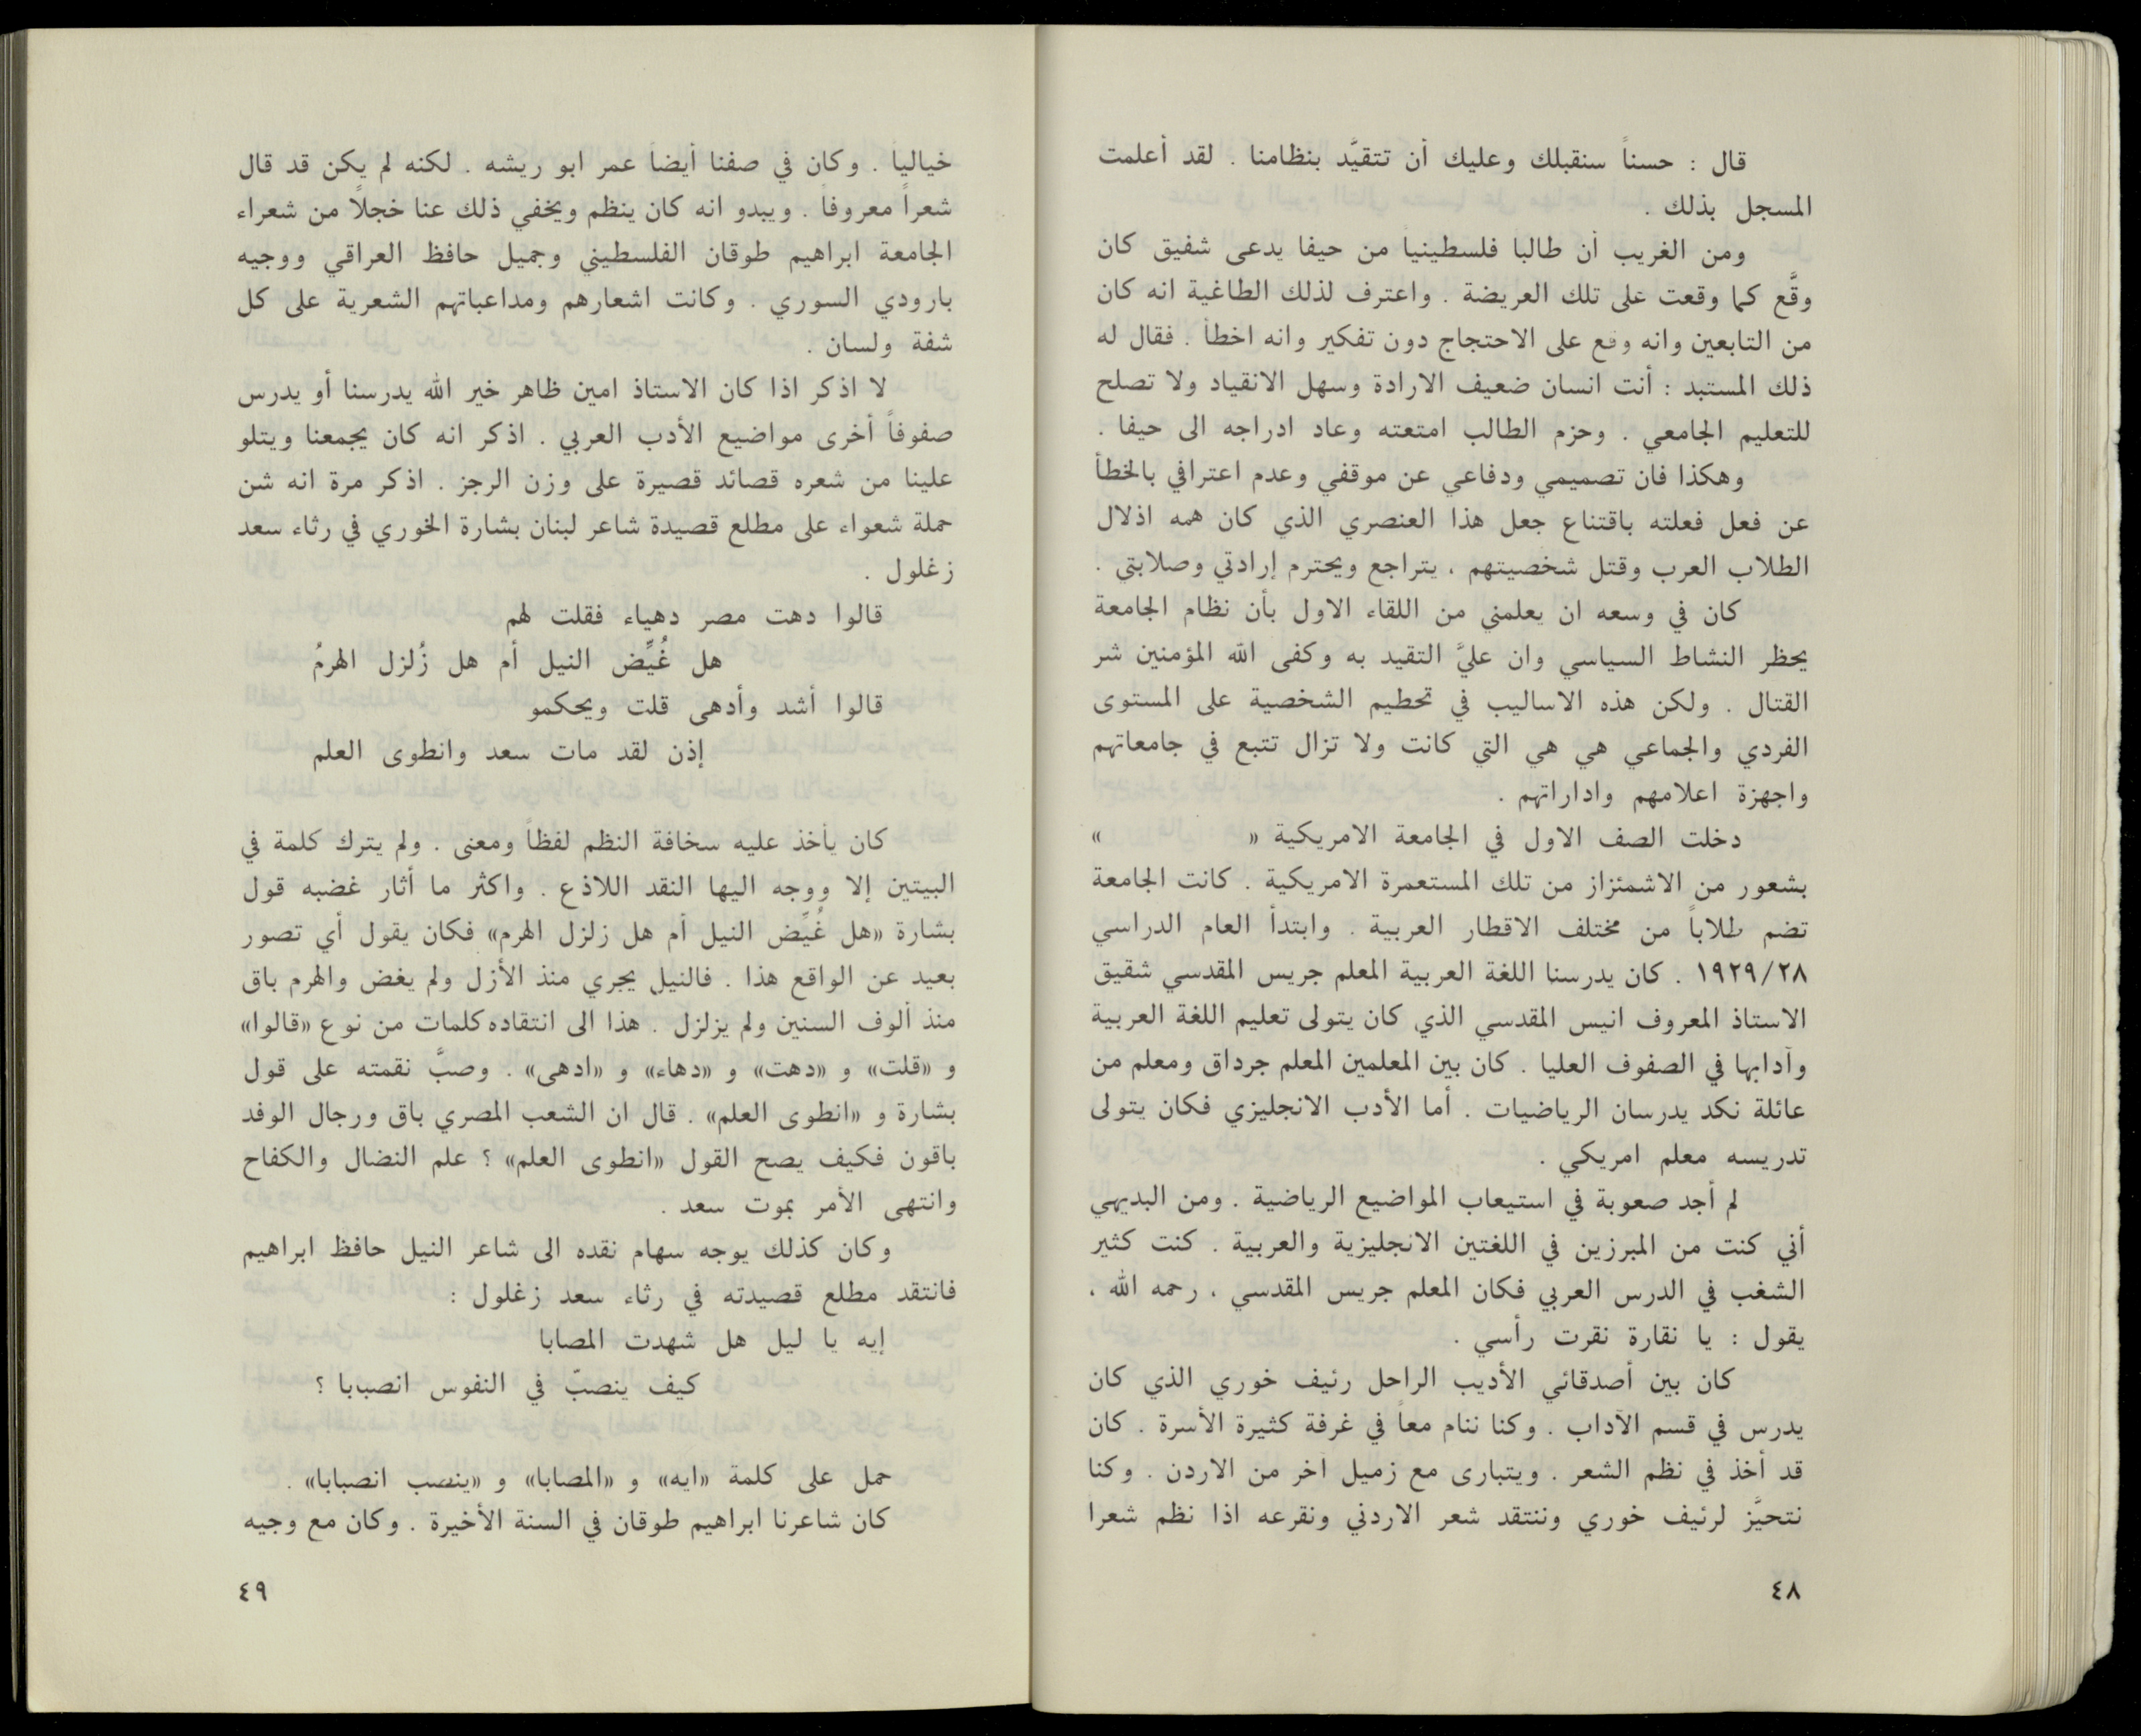 قال : حسناً سنقبلك وعليك أن تتقيَّد بنظامنا . لقد أعلمت
المسجل بذلك .
ومن الغريب أن طالبا فلسطينياً من حيفا يدعى شفيق كان
وقَّع كما وقعت على تلك العريضة . واعترف لذلك الطاغية انه كان
من التابعين وانه وقع على الاحتجاج دون تفكير وانه اخطأ . فقال له
ذلك المستبد : أنت انسان ضعيف الارادة وسهل الانقياد ولا تصلح
للتعليم الجامعي . وحزم الطالب امتعته وعاد ادراجه الى حيفا .
وهكذا فان تصميمي ودفاعي عن موقفي وعدم اعترافي بالخطأ
عن فعل فعلته باقتناع جعل هذا العنصري الذي كان همه اذلال
الطلاب العرب وقتل شخصيتهم ، يتراجع ويحترم إرادتي وصلابتي .
كان في وسعه ان يعلمني من اللقاء الاول بأن نظام الجامعة
يحظر النشاط السياسي وان عليَّ التقيد به وكفى الله المؤمنين شر
القتال . ولكن هذه الاساليب في تحطيم الشخصية على المستوى
الفردي والجماعي هي هي التي كانت ولا تزال تتبع في جامعاتهم
واجهزة اعلامهم واداراتهم .
دخلت الصف الاول في الجامعة الامريكية « »
بشعور من الاشمئزاز من تلك المستعمرة الامريكية . كانت الجامعة
تضم طلاباً من مختلف الاقطار العربية . وابتدأ العام الدراسي
١٩٢٩/٢٨ . كان يدرسنا اللغة العربية المعلم جريس المقدسي شقيق
الاستاذ المعروف انيس المقدسي الذي كان يتولى تعليم اللغة العربية
وآدابها في الصفوف العليا . كان بين المعلمين المعلم جرداق ومعلم من
عائلة نكد يدرسان الرياضيات . أما الأدب الانجليزي فكان يتولى
تدريسه معلم امريكي .
لم أجد صعوبة في استيعاب المواضيع الرياضية . ومن البديهي
أني كنت من المبرزين في اللغتين الانجليزية والعربية . كنت كثير
الشغب في الدرس العربي فكان المعلم جريس المقدسي ، رحمه الله ،
يقول : يا نقارة نقرت رأسي .
كان بين أصدقائي الأديب الراحل رئيف خوري الذي كان
يدرس في قسم الآداب . وكنا ننام معاً في غرفة كثيرة الأسرة . كان
قد أخذ في نظم الشعر . ويتبارى مع زميل آخر من الاردن . وكنا
نتحيَّز لرئيف خوري وننتقد شعر الاردني ونقرعه اذا نظم شعرا
٤٨
خيالياً . وكان في صفنا أيضاً عمر ابو ريشه . لكنه لم يكن قد قال
شعراً معروفاً . ويبدو انه كان ينظم ويخفي ذلك عنا خجلاً من شعراء
الجامعة ابراهيم طوقان الفلسطيني وجميل حافظ العراقي ووجيه
بارودي السوري . وكانت اشعارهم ومداعباتهم الشعرية على كل
شفة ولسان .
لا اذكر اذا كان الاستاذ امين ظاهر خير الله يدرسنا أو يدرس
صفوفاً أخرى مواضيع الأدب العربي . اذكر انه كان يجمعنا ويتلو
علينا من شعره قصائد قصيرة على وزن الرجز . اذكر مرة انه شن
حملة شعواء على مطلع قصيدة شاعر لبنان بشارة الخوري في رثاء سعد
زغلول .
قالوا دهت مصر دهياء فقلت لهم
هل غُيِّض النيل أم هل زُلزل الهرمُ
قالوا أشد وأدهى قلت ويحكمو
إذن لقد مات سعد وانطوى العلم
كان يأخذ عليه سخافة النظم لفظاً ومعنى . ولم يترك كلمة في
البيتين إلا ووجه اليها النقد اللاذع . واكثر ما أثار غضبه قول
بشارة «هل غُيِّض النيل أم هل زلزل الهرم» فكان يقول أي تصور
بعيد عن الواقع هذا . فالنيل يجري منذ الأزل ولم يغض والهرم باق
منذ ألوف السنين ولم يزلزل . هذا الى انتقاده كلمات من نوع «قالوا»
و «قلت» و «دهت» و «دهاء» و «ادهى» . وصبَّ نقمته على قول
بشارة و «انطوى العلم» . قال ان الشعب المصري باق ورجال الوفد
باقون فكيف يصح القول «انطوى العلم» ؟ علم النضال والكفاح
وانتهى الأمر بموت سعد .
وكان كذلك يوجه سهام نقده الى شاعر النيل حافظ ابراهيم
فانتقد مطلع قصيدته في رثاء سعد زغلول :
إيه يا ليل هل شهدت المصابا
كيف ينصبّ في النفوس انصبابا ؟
حمل على كلمة «ايه» و «المصابا» و «ينصب انصبابا» .
كان شاعرنا ابراهيم طوقان في السنة الأخيرة . وكان مع وجيه
٤٩